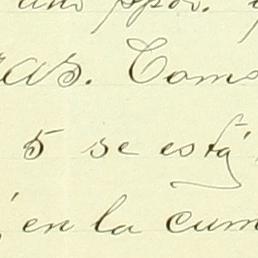 as. Como
5 se está
en la cum